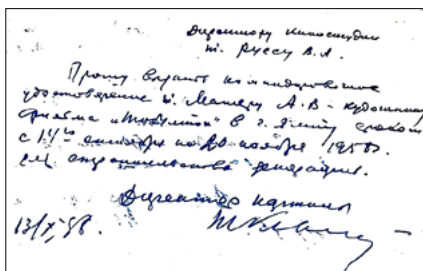 Директору Киностудии
т. Руссу В.А.
Прошу выдать командировочное
удостоверение т. Матеру А.В - художнику
фильма в г. Ялту сроком
с 14го октября по 20 ноября 1958г.
для строительства декораций.
Директор картины
13/X 58.